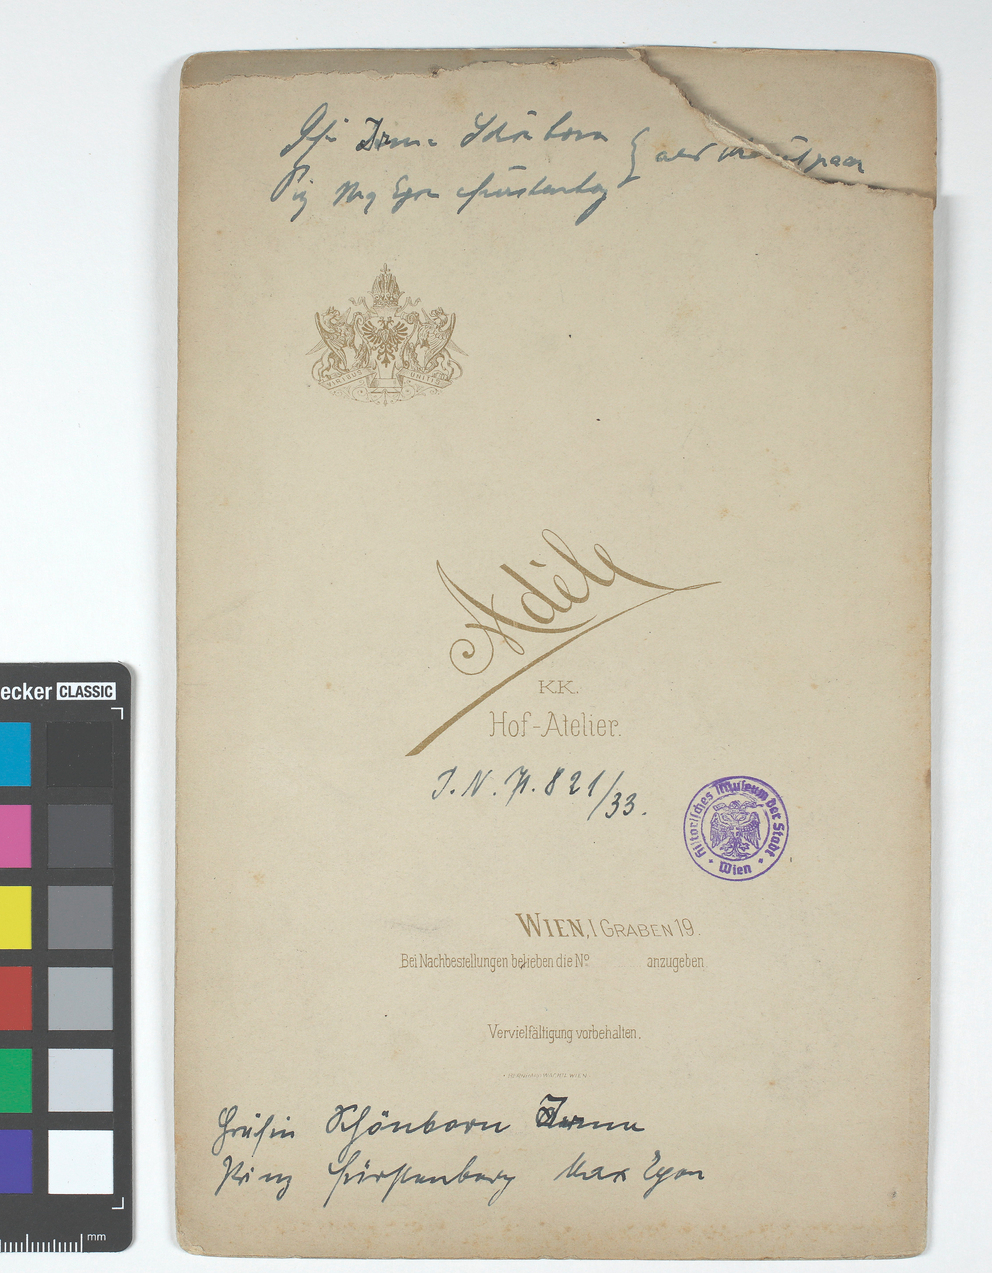 Gfi Irma Schönborn } als Brautpaar
Pig Max Egon Fürstenberg
VIRIBUS UNITIS
Adèle
K.K.
Hof-Atelier.
J.N. H. 821/33.
Historisches Museum der Stadt Wien
WIEN, I GRABEN 19.
Bei Nachbestellungen belieben die Nº anzugeben
Vervielfältigung vorbehalten.
Gräfin Schönborn Irma
Prinz Fürstenberg Max Egon
ecker CLASSIC
mm